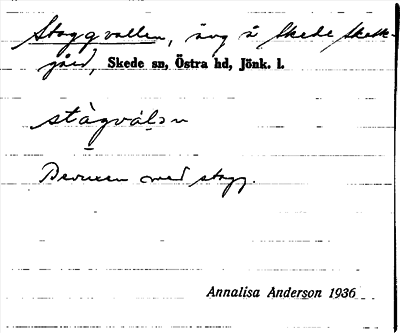 Staggvallen, äng å Skede skatte-
gård, Skede sn, Östra hd, Jönk. l.
stàgválən
Bevuxen med stagg.
Annalisa Anderson 1936